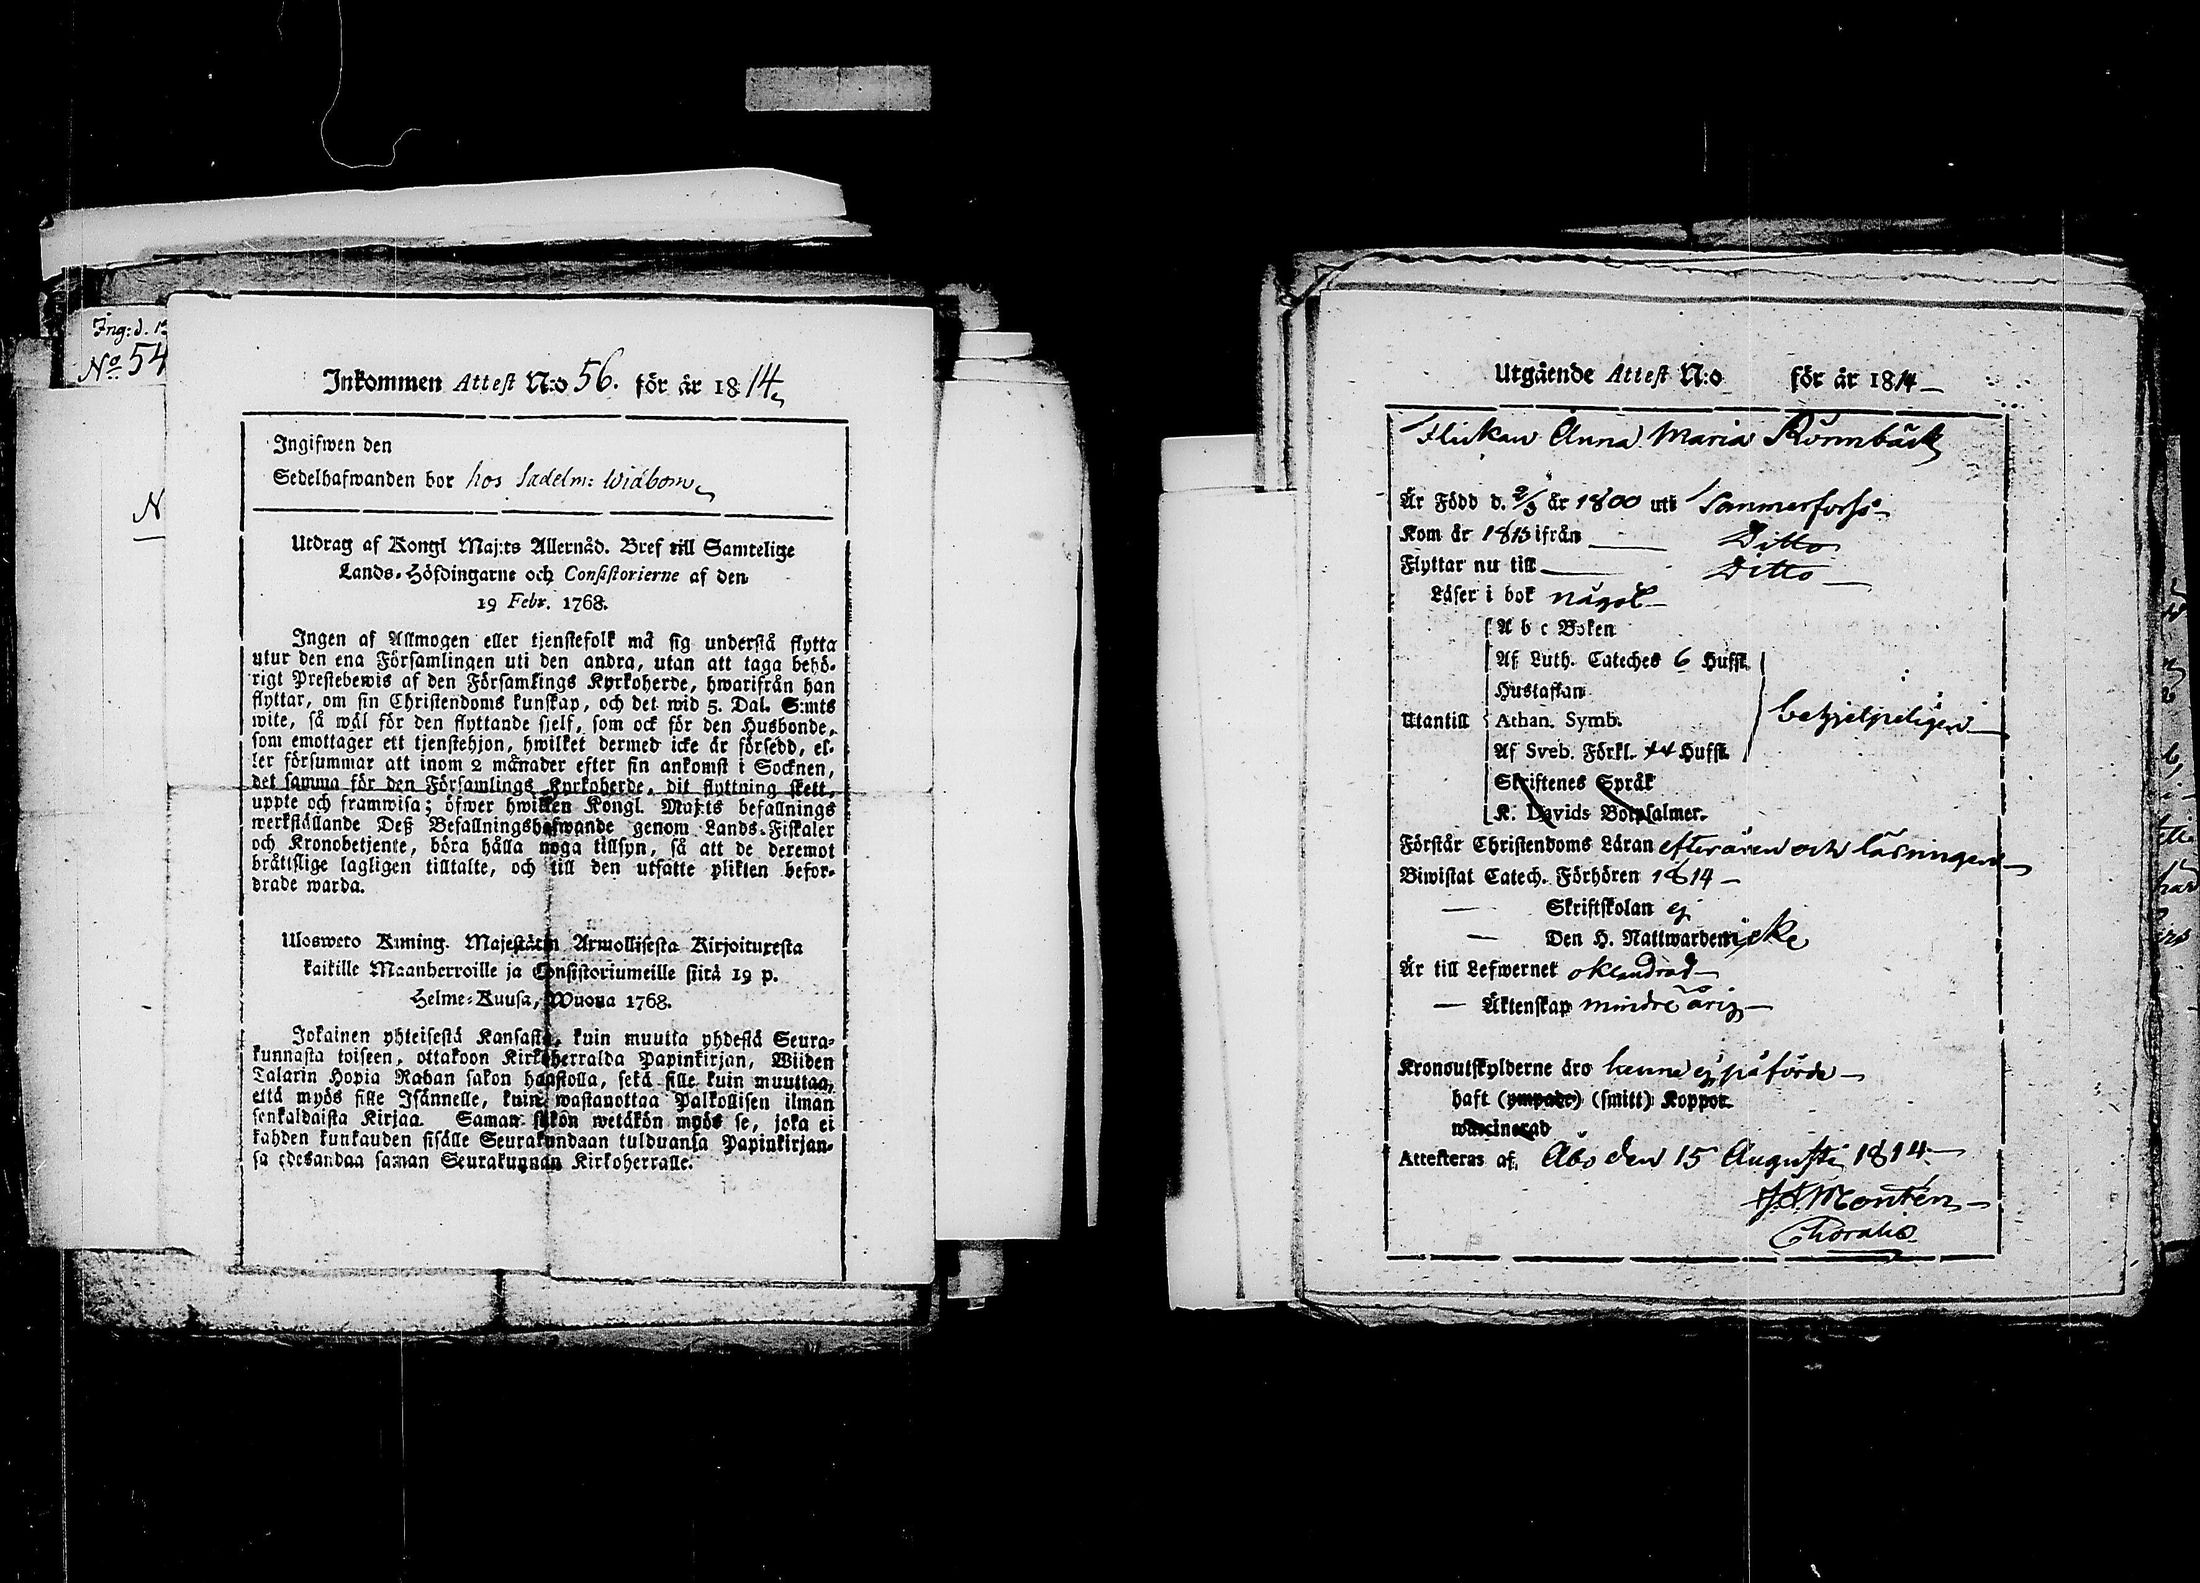 Ing: d. 13
No 54
N
Inkommen Attest N:o 56. för år 1814
Ingifwen den
Sedelhafwanden bor hos Sadelm: Widbom
Utdrag af Kongl Maj:ts Allernåd. Bref till Samtelige
Lands-Höfdingarne och Consistorierne af den
19 Febr. 1768.
Ingen af Allmogen eller tjenstefolk må sig understå flytta
utur den ena Församlingen uti den andra, utan att taga behö-
rigt Prestebewis af den Församlings Kyrkoherde, hwarifrån han
flyttar, om sin Christendoms kunskap, och det wid 5. Dal. S:mts
wite, så wäl för den flyttande sjelf, som ock för den Husbonde,
som emottager ett tjenstehjon, hwilket dermed icke är försedd, el-
ler försummar att inom 2 månader efter sin ankomst i Socknen,
det samma för den Församlings Kyrkoherde, dit flyttning skett,
uppte och framwisa; öfwer hwilken Kongl. Maj:ts befallnings
werkställande Deß Befallningshafwande genom Lands-Fiskaler
och Kronobetjente, böra hålla noga tillsyn, så att de deremot
bråttslige lagligen tilltalte, och till den utsatte plikten befor-
drade warda.
Uloswето Kuning. Majestätin Armollisesta Kirjoituxesta
kaikille Maanherroille ja Consistoriumeille siitä 19 p.
Helme-Kuusa, Wuona 1768.
Jokainen yhteisestä Kansasta, kuin muutta yhdestä Seura-
kunnasta toiseen, ottakoon Kirkkoherralda Papinkirjan, Wiiden
Talarin Hopia Rahan sakon haastolla, sekä sille kuin muuttaa,
että myös sille Isännelle, kuin wastanottaa Palkollisen ilman
senkaldaista Kirjaa. Saman sakon wetäkön myös se, joka ei
kahden kuukauden sisälle Seurakundaan tulduansa Papinkirjan-
sa edesandaa saman Seurakunnan Kirkoherralle.
Utgående Attest N:o för år 1814
Flickan Anna Maria Rönnbäck
Är Född d. 2/3 år 1800 uti Tammerfors
Kom år 1813 ifrån Ditto
Flyttar nu till Ditto
Läser i bok någol
A b c Boken
Af Luth. Cateches 6 Hufst.
Hustaflan
Utantill Athan. Symb. behjelpeligen
Af Sveb. Förkl. Hufst.
Skriftenes Språk
K. Davids Botpsalmer.
Förstår Christendoms Läran efter åren och läsningen
Biwistat Catech. Förhören 1814
— Skriftskolan ej
— Den H. Nattwarden icke
Är till Lefwernet oklandrad
— Äktenskap minderårig
Kronoutskylderne äro henne ej påförde
haft (ympade) (smitt) Koppor.
waccinerad
Attesteras af, Åbo den 15 Augusti 1814
Montén